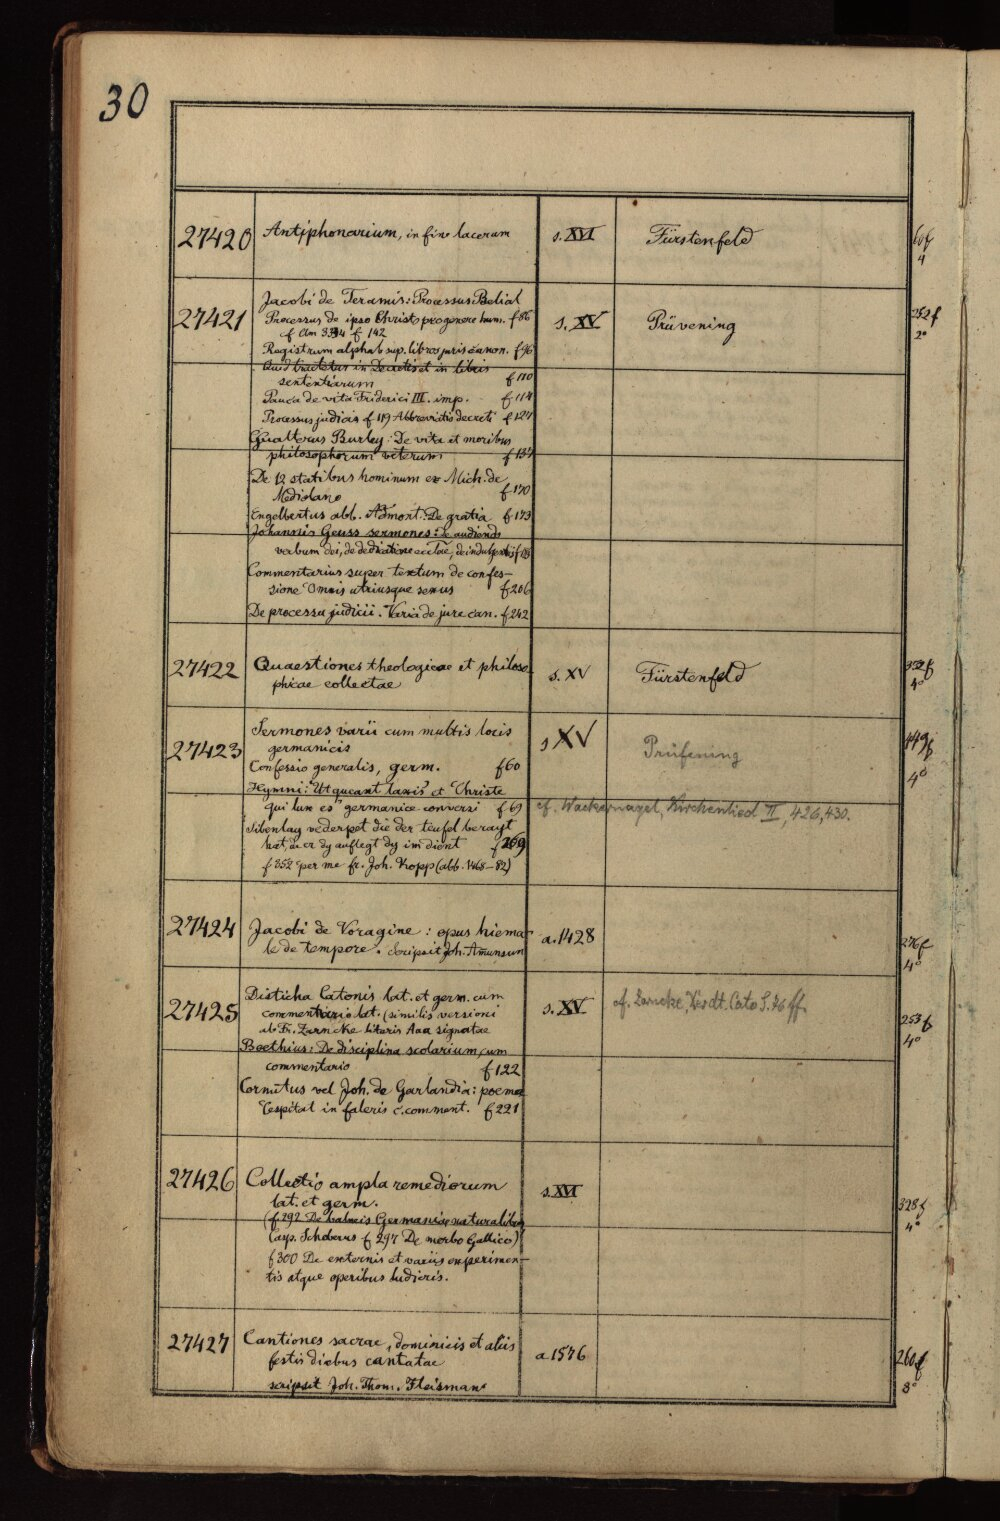 30
27420 Antiphonarium, in fine lacerum s. XVI Fürstenfeld 4
27421 Jacobi de Teramis: Processus Belial s. XV Prüvening 252 f 2°
Processus de ipso Christo pro genere hum. f 86
f 142
Registrum alphab sup. libros juris canon. f 96
Quid tractetur in Decretis et in libris
sententiarum f 110
Pauca de vita Friderici III. imp. f 114
Processus judicis f 119 Abbreviatio decreti f 127
Gualterus Burley: De vita et moribus
philosophorum veterum f 137
De 12 statibus hominum ex Mich. de
Mediolano f 170
Engelbertus abb. Admont. De gratia f 173
Johannis Geuss sermones: de audiendo
verbum dei, de dedicatione
Commentarius super textum de confes-
sione Omnis utriusque sexus f 206
De processu judicii. Varia de jure can. f 242
27422 Quaestiones theologicae et philoso- s. XV Fürstenfeld 4°
phicae collectae
27423 Sermones varii cum multis locis s XV Prüfening 449 f 4°
germanicis
Confessio generalis, germ. f 60
Hymni: Ut queant laxis et Christe
qui lux es germanice conversi f 69 cf. Wackernagel, Kirchenlied II, 426, 430.
die der teufel
f 269
f 352 per me fr. Joh. Kopp (abb. 1468–82)
27424 Jacobi de Voragine: opus hiema- a. 1428 276 f 4°
le de tempore. Scripsit Joh. Amunsun
27425 Disticha Catonis lat. et germ. cum s. XV cf. Zarncke, Deut. Cato S. 26 ff. 253 f 4°
commentario lat. (similis versioni
ab Fr. Zarncke literis Aaa signatae
Boethius: De disciplina scolarium, cum
commentario f 122
Cornutus vel Joh. de Garlandia: poema
Cespitat in faleris c. comment. f 221
27426 Collectio ampla remediorum s. XVI 328 f 4°
lat. et germ.
(f 292 De balneis Germaniae naturalibus
Casp. Schoberus f 297 De morbo Gallico)
f 300 De externis et variis experimen-
tis atque operibus ludicris.
27427 Cantiones sacrae, dominicis et aliis a 1576 260 f 8°
festis diebus cantatae
scripsit Joh. Thom. Fleisman